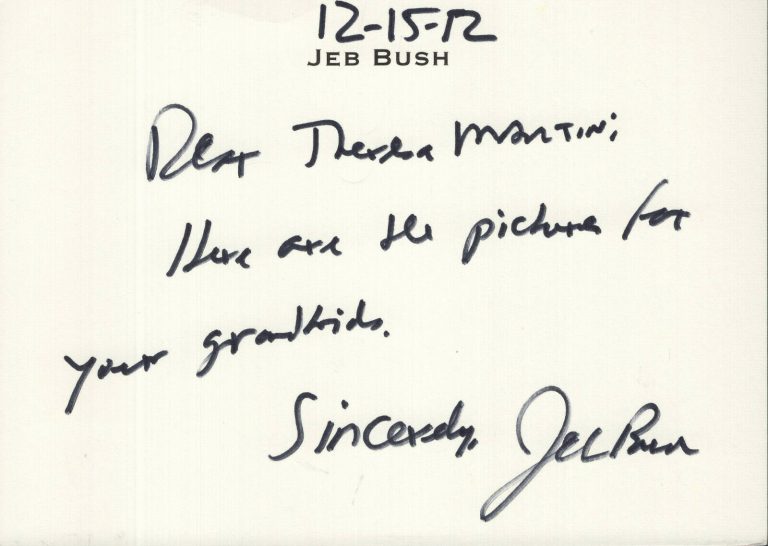 12-15-12
JEB BUSH
Dear Theresa MARTIN;
Here are the pictures for
your grandkids.
Sincerely, Jeb Bush